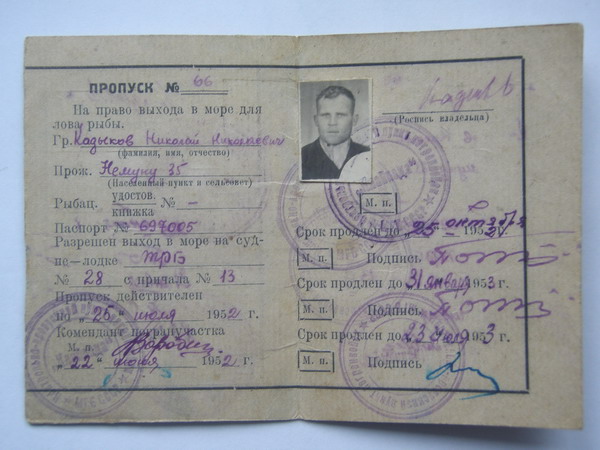 ПРОПУСК № 66
На право выхода в море для
лова рыбы.
Гр. Кадыков Николай Николаевич
(фамилия, имя, отчество)
Прож. Немуну 35
(Населенный пункт и сельсовет)
Рыбац. удостов. книжка № -
Паспорт № 697005
Разрешен выход в море на суд-
не—лодке трб
№ 28 с причала № 13
Пропуск действителен
по „25" июля 1952 г.
Комендант погранучастка
М. п.
„22" июня 1952 г.
(Роспись владельца)
М. п.
Срок продлен до „25" октября 1952 г.
М. п. Подпись
Срок продлен до 31 января 1953 г.
М. п. Подпись
Срок продлен до 23 июля 1953 г.
М. п. Подпись